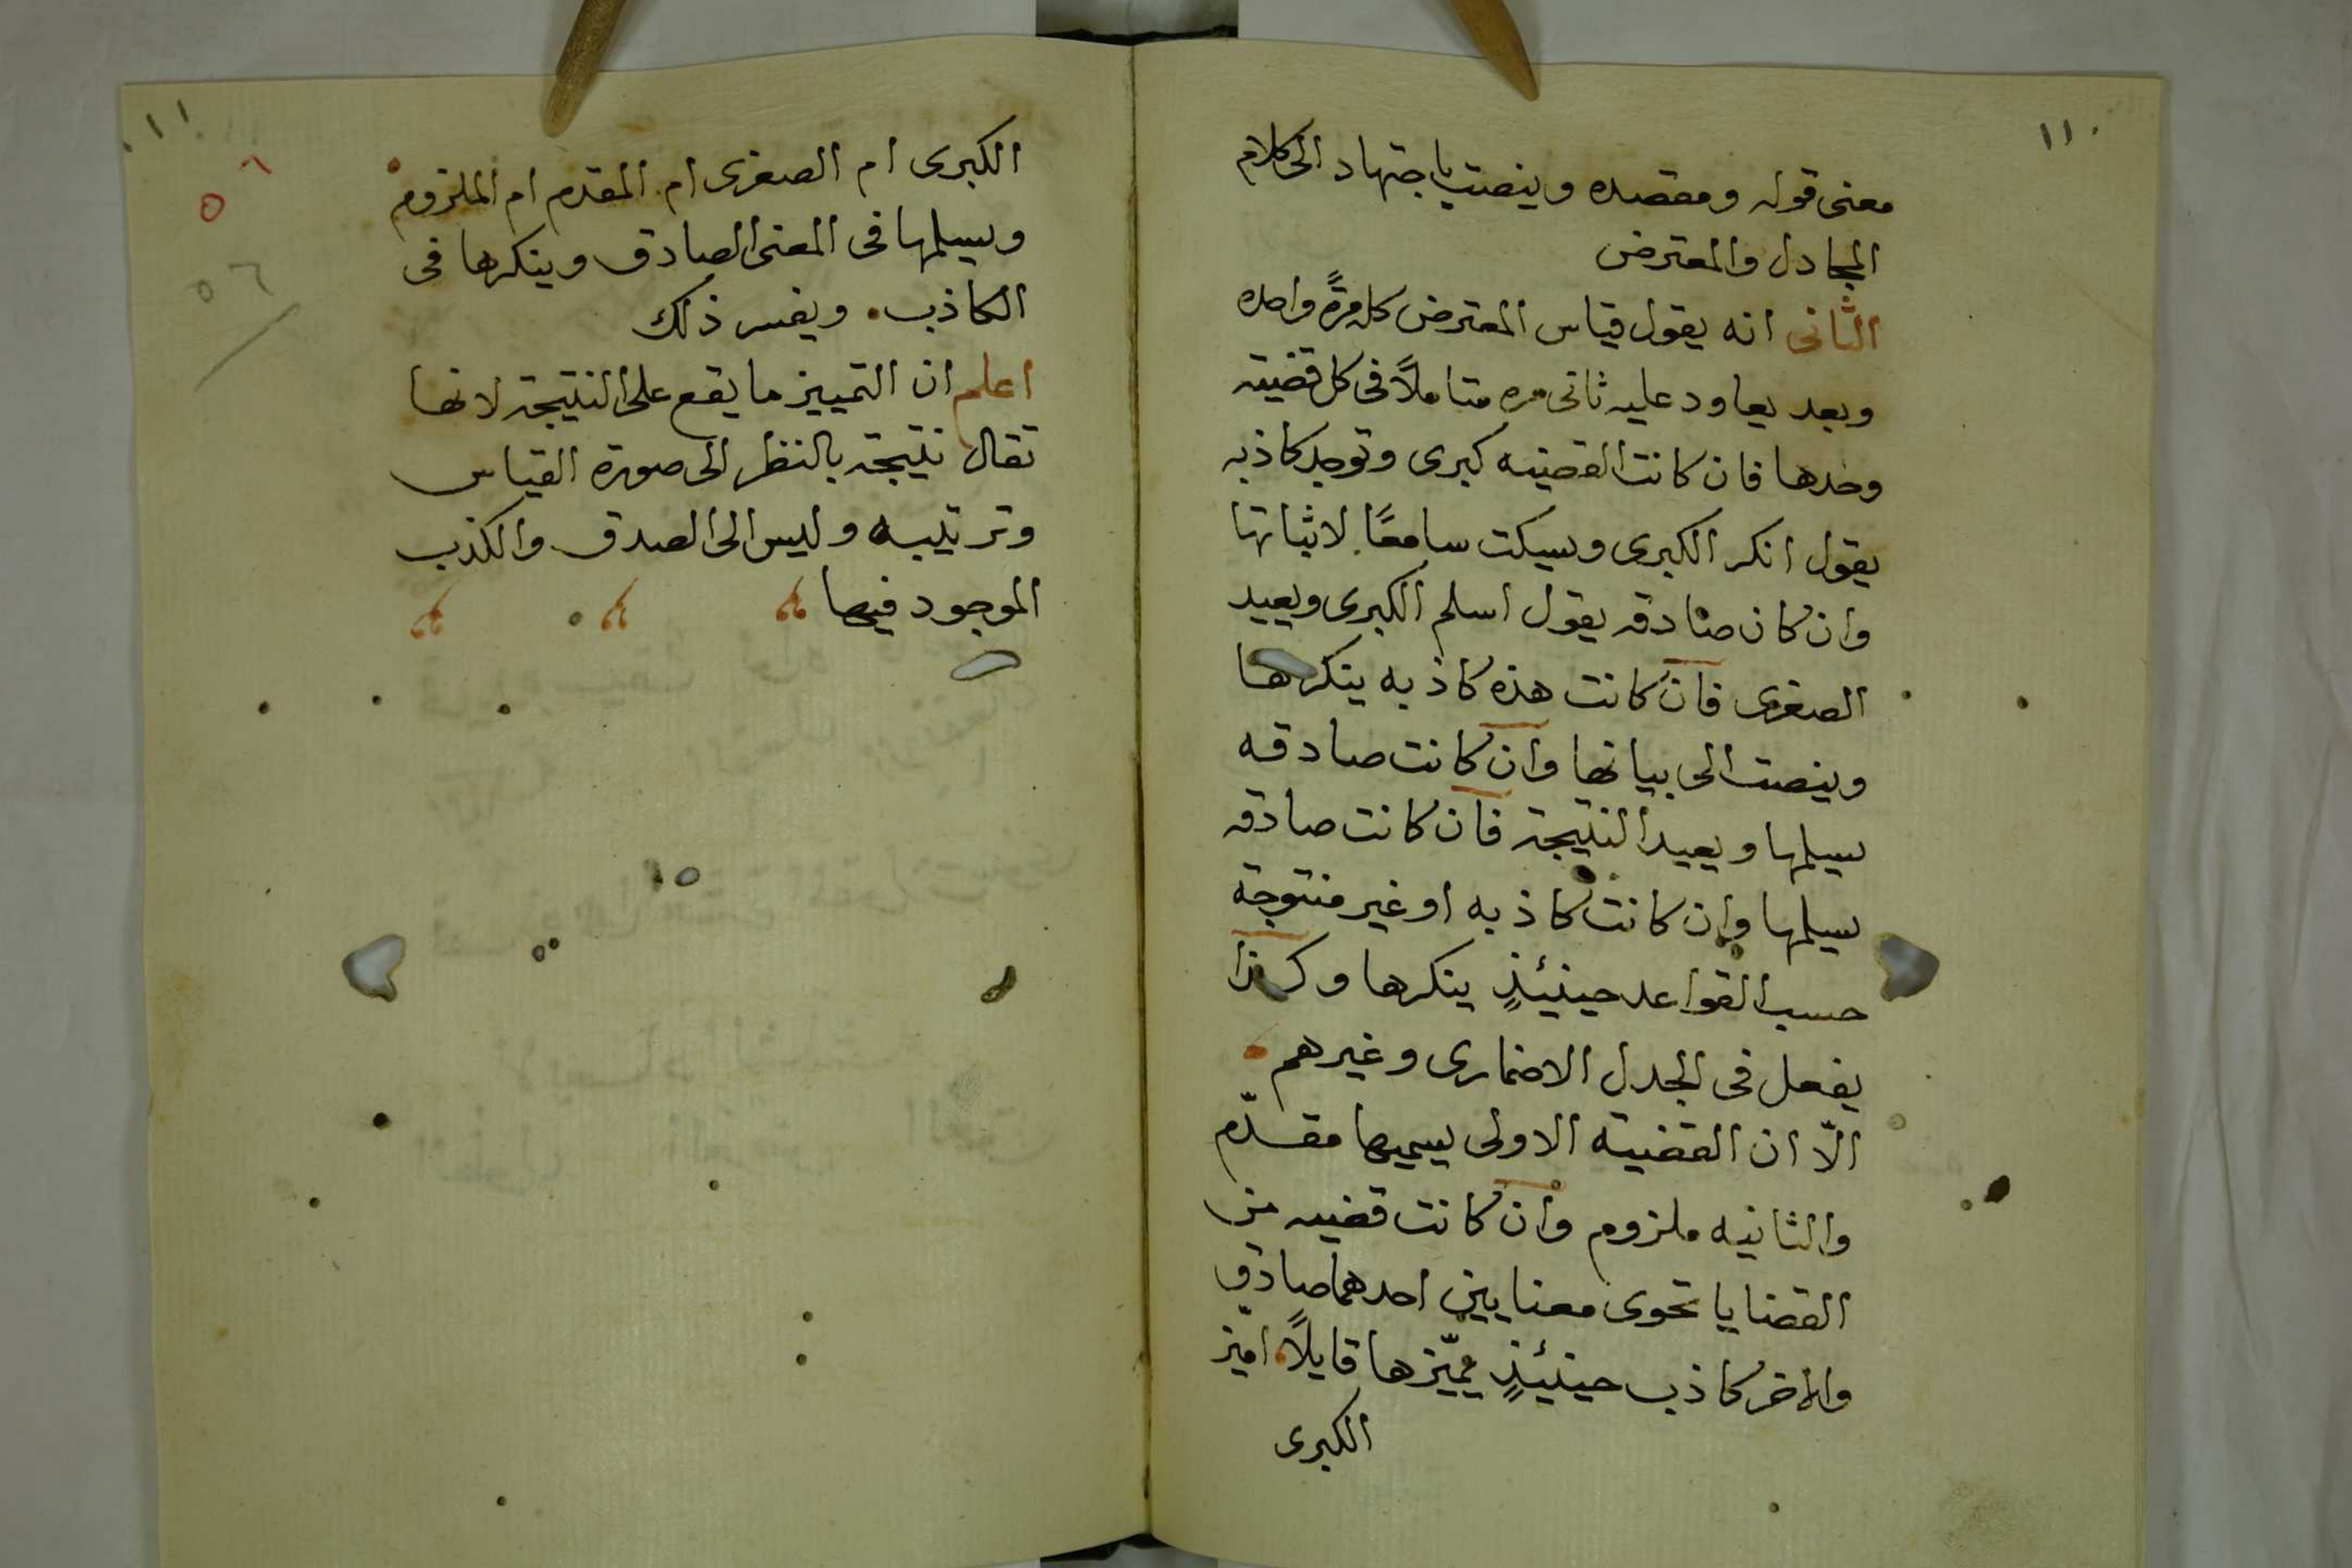 ١١٠
معنى قوله ومقصده وينصت باجتهاد الى كلام
المجادل والمعترض
الثانى انه يقول قياس المعترض كله مرةً واحده
وبعد يعاود عليه ثانى مره متاملاً فى كل قضيته
وحدها فان كانت القضيه كبرى وتوجد كاذبه
يقول انكر الكبرى ويسكت سامعًا لاثباتها
وان كان صادقه يقول اسلم الكبرى ويعيد
الصغرى فان كانت هذه كاذبه ينكرها
وينصت الى بيانها وان كانت صادقه
يسلمها ويعيد النتيجة فان كانت صادقه
يسلمها وان كانت كاذبه او غير منتوجة
حسب القواعد حينيئذٍ ينكرها وكذا
يفعل فى الجدل الاضمارى وغيرهم
الّا ان القضية الاولى يسميها مقدّم
والثانيه ملزوم وان كانت قضيه من
القضايا تحوى معنايين احدهما صادق
والاخر كاذب حينيئذٍ يميّزها قايلاً اميّز
الكبرى
١١١
الكبرى ام الصغرى ام المقدم ام الملزوم
ويسلمها فى المعنى الصادق وينكرها فى
الكاذب. ويفسر ذلك
اعلم ان التمييز ما يقع على النتيجة لانها
تقال نتيجة بالنظر الى صورة القياس
وترتيبه وليس الى الصدق والكذب
الموجود فيها
٥٦